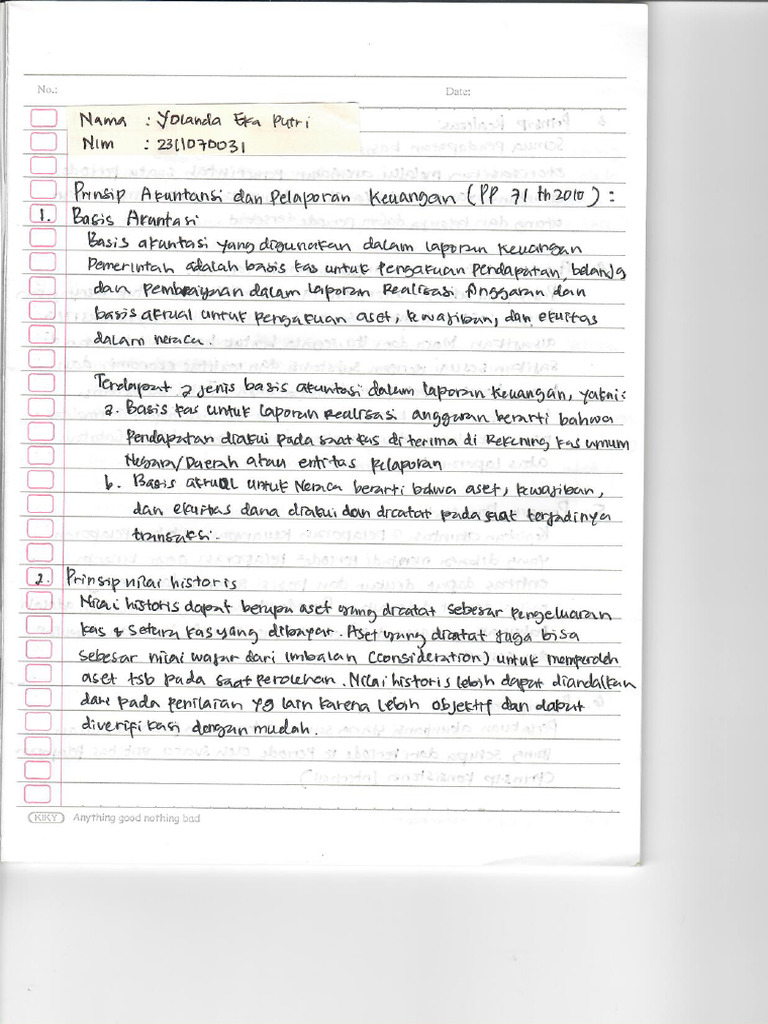 No.:
Date:
Nama : Yolanda Eka Putri
Nim : 2311070031
Prinsip Akuntansi dan Pelaporan Keuangan (PP 71 th 2010) :
1. Basis Akuntasi
Basis akuntasi yang digunakan dalam laporan keuangan
Pemerintah adalah basis kas untuk pengakuan pendapatan, belanja
dan pembiayaan dalam laporan Realisasi Anggaran dan
basis akrual untuk pengakuan aset, kewajiban, dan ekuitas
dalam neraca.
Terdapat 2 jenis basis akuntasi dalam laporan keuangan, yakni:
a. Basis kas untuk laporan Realisasi anggaran berarti bahwa
Pendapatan diakui pada saat kas di terima di Rekening kas umum
Negara/Daerah atau entitas pelaporan
b. Basis akrual untuk Neraca berarti bahwa aset, kewajiban,
dan ekuitas dana diakui dan dicatat pada saat terjadinya
transaksi.
2. Prinsip nilai historis
Nilai historis dapat berupa aset yang dicatat sebesar pengeluaran
kas & setara kas yang dibayar. Aset yang dicatat juga bisa
sebesar nilai wajar dari imbalan (consideration) untuk memperoleh
aset tsb pada saat perolehan. Nilai historis lebih dapat diandalkan
dari pada penilaian yg lain karena lebih objektif dan dapat
diverifikasi dengan mudah.
KIKY Anything good nothing bad